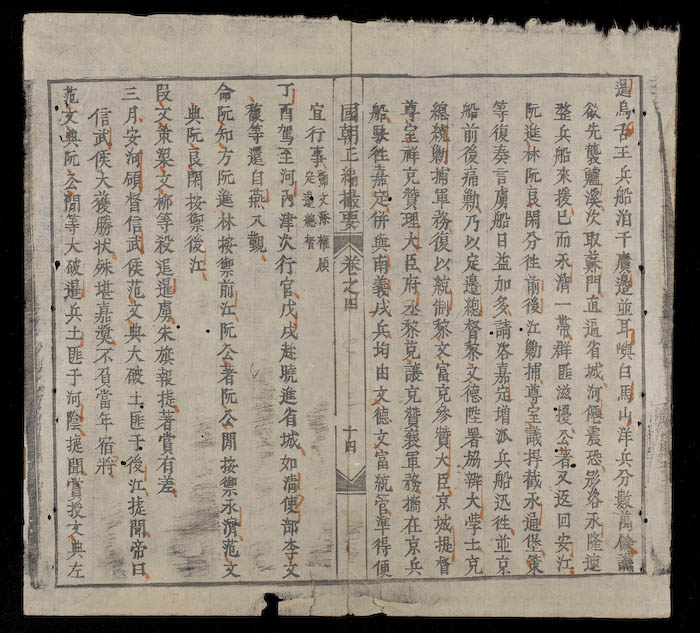 暹烏舌王兵船泊于廣邊並耳嶼白馬山洋兵分數萬
欲先襲鱸溪次取蘇門直逼省城河僊震恐移洛永隆速
整兵船來援已而永濟一帶群匪滋擾公著又返回安江
阮進林阮良閑分往前後江勦捕尊室議捍截永通堡策
等復奏言虜船日益加多請洛嘉定增派兵船迅往並京
船前後痛勦乃以定邊總督黎文德陞署協辦大學士克
總統勦捕軍務復以統制黎文富克參贊大臣京城提督
尊室祥克贊理大臣府丞黎克讓克贊襄軍務摘在京兵
船馱往嘉定併與南義戍兵均由文德文富統管準得便
國朝正編撮要 卷之四 十四
宜行事 鄧文龢權領定邊總督
丁酉駕至河內津次行宮戊戌趁曉進省城如清使部李文
馥等還自燕入覲
命阮知方阮進林按禦前江阮公著阮公閒按禦永濟范文
典阮良閑按禦後江
段文策梁文柳等殺退暹虜朱旗報捷著賞有差
三月安河領督信武侯范文典大破土匪于後江捷聞帝曰
信武侯大獲勝狀殊堪嘉獎不負當年宿將
范文典阮公閒等大破暹兵土匪于河陰捷聞賞授文典左